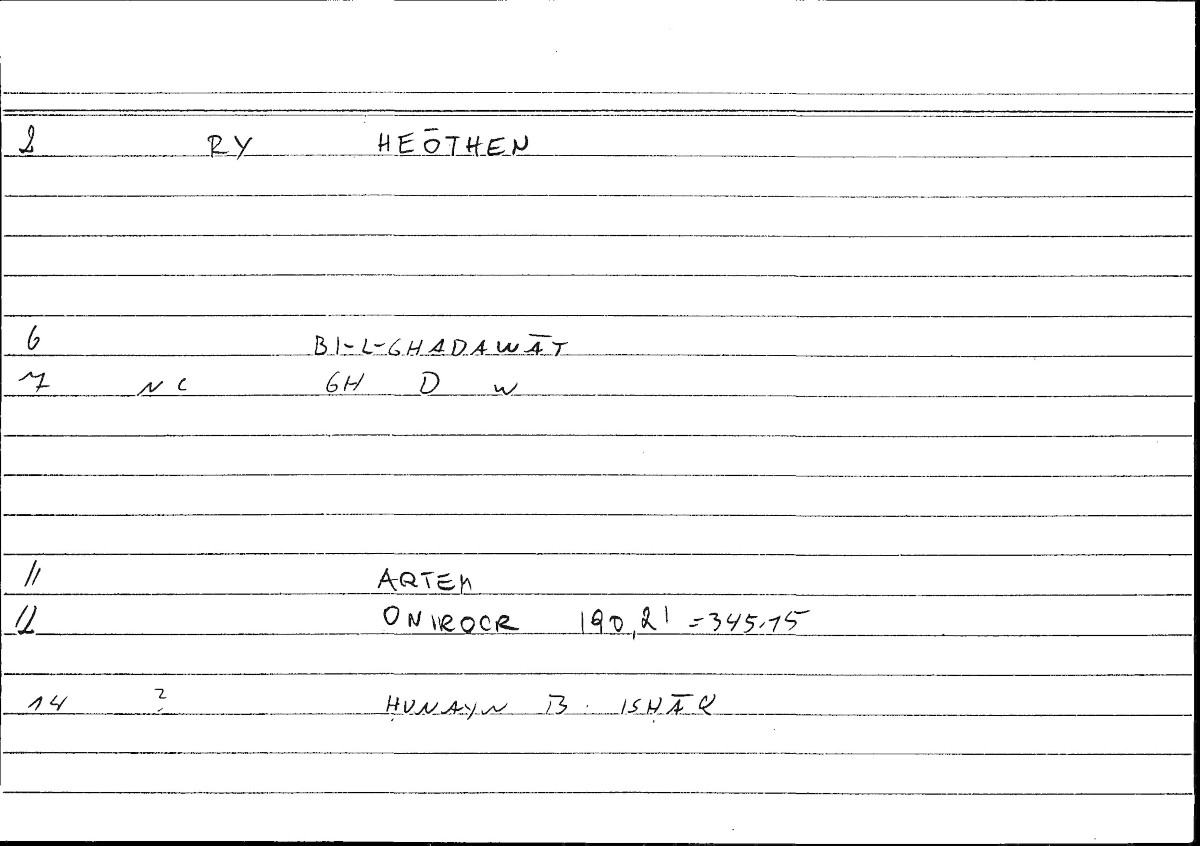 2 RY HEŌTHEN
6 BI-L-GHADAWĀT
7 NC GH D W
11 ARTEM
12 ONIROCR 190,21 = 345.15
14 ? ḤUNAYN B. ISḤĀQ